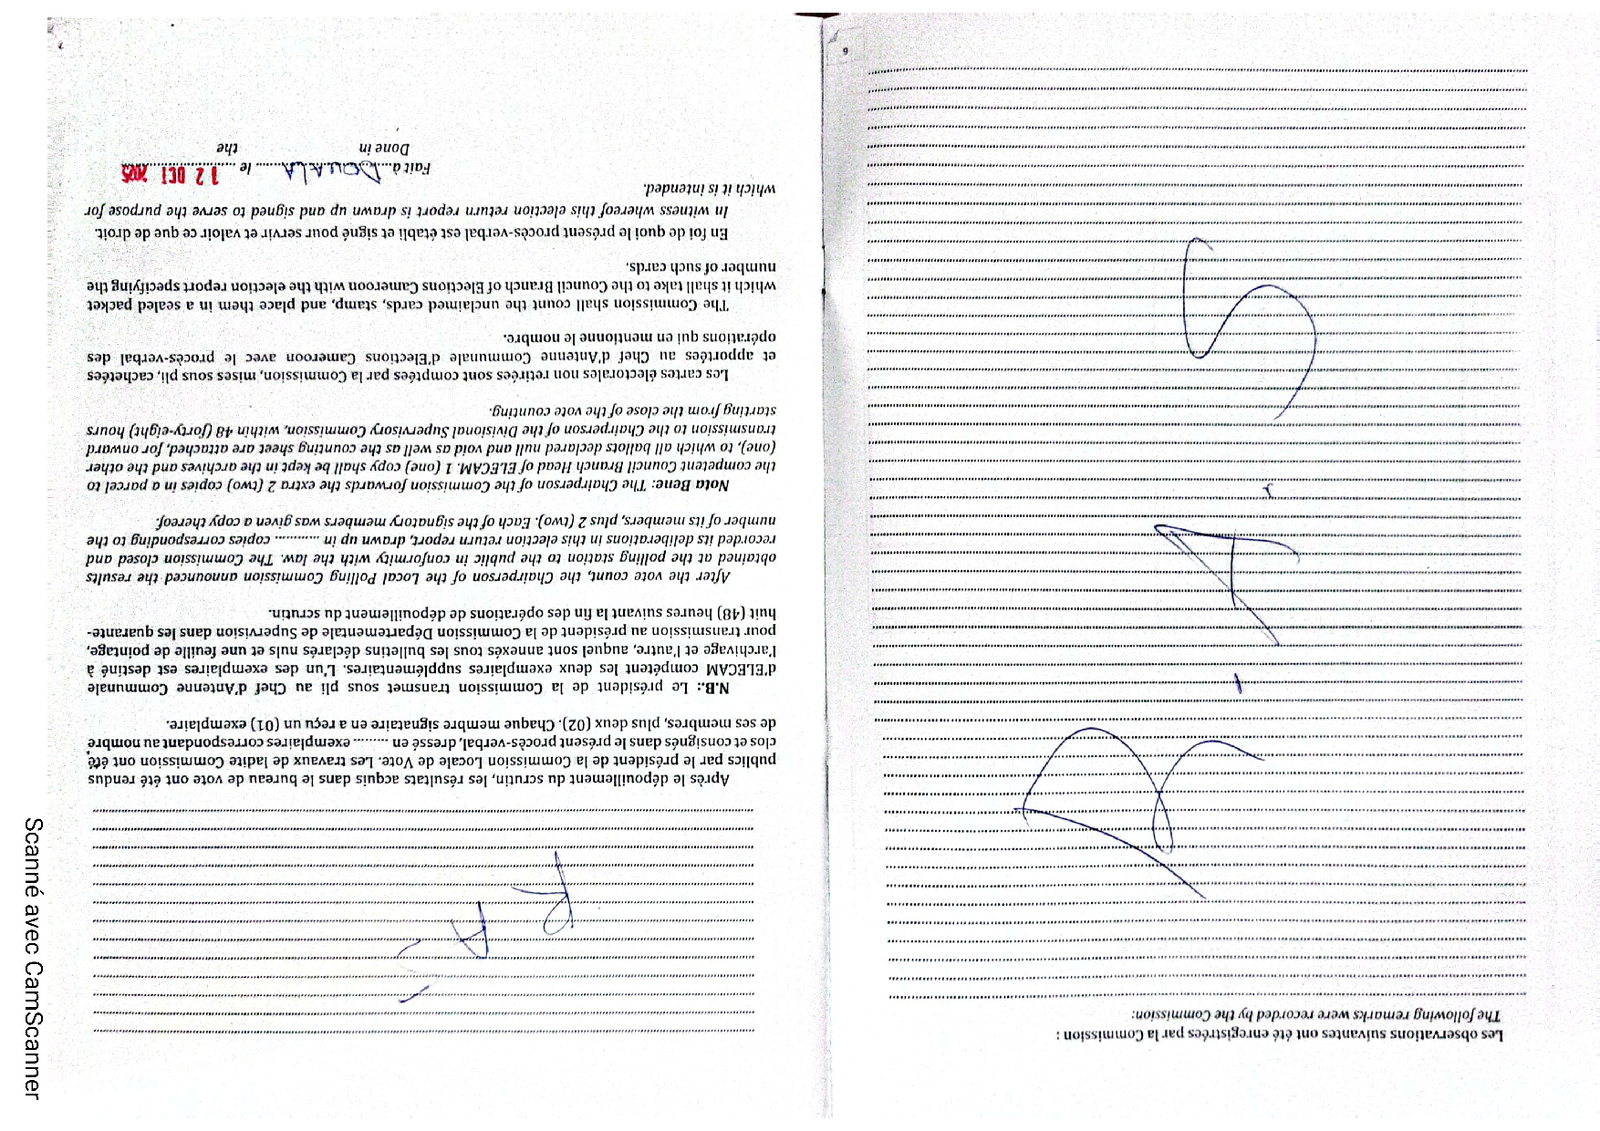 6
Les observations suivantes ont été enregistrées par la Commission :
The following remarks were recorded by the Commission:
R A S
R A S
Après le dépouillement du scrutin, les résultats acquis dans le bureau de vote ont été rendus
publics par le président de la Commission Locale de Vote. Les travaux de ladite Commission ont été
clos et consignés dans le présent procès-verbal, dressé en ......... exemplaires correspondant au nombre
de ses membres, plus deux (02). Chaque membre signataire en a reçu un (01) exemplaire.
N.B.: Le président de la Commission transmet sous pli au Chef d'Antenne Communale
d'ELECAM compétent les deux exemplaires supplémentaires. L'un des exemplaires est destiné à
l'archivage et l'autre, auquel sont annexés tous les bulletins déclarés nuls et une feuille de pointage,
pour transmission au président de la Commission Départementale de Supervision dans les quarante-
huit (48) heures suivant la fin des opérations de dépouillement du scrutin.
After the vote count, the Chairperson of the Local Polling Commission announced the results
obtained at the polling station to the public in conformity with the law. The Commission closed and
recorded its deliberations in this election return report, drawn up in ........... copies corresponding to the
number of its members, plus 2 (two). Each of the signatory members was given a copy thereof.
Nota Bene: The Chairperson of the Commission forwards the extra 2 (two) copies in a parcel to
the competent Council Branch Head of ELECAM. 1 (one) copy shall be kept in the archives and the other
(one), to which all ballots declared null and void as well as the counting sheet are attached, for onward
transmission to the Chairperson of the Divisional Supervisory Commission, within 48 (forty-eight) hours
starting from the close of the vote counting.
Les cartes électorales non retirées sont comptées par la Commission, mises sous pli, cachetées
et apportées au Chef d'Antenne Communale d'Elections Cameroon avec le procès-verbal des
opérations qui en mentionne le nombre.
The Commission shall count the unclaimed cards, stamp, and place them in a sealed packet
which it shall take to the Council Branch of Elections Cameroon with the election report specifying the
number of such cards.
En foi de quoi le présent procès-verbal est établi et signé pour servir et valoir ce que de droit.
In witness whereof this election return report is drawn up and signed to serve the purpose for
which it is intended.
Fait à DOUALA le 12 OCT 2025
Done in the
7
Scanné avec CamScanner